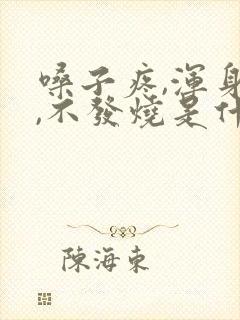 嗓子疼,渾身
,不發燒是什
陳海東